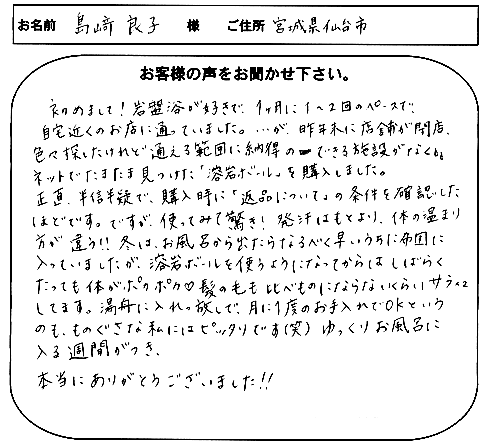 お名前 島﨑 良子 様 ご住所 宮城県仙台市
お客様の声をお聞かせ下さい。
初めまして！岩盤浴が好きで、1ヶ月に1〜2回のペースで、
自宅近くのお店に通っていました。…が、昨年末に店舗が閉店、
色々探したけれど通える範囲に納得のできる施設がなく、
ネットでたまたま見つけた「溶岩ボール」を購入しました。
正直、半信半疑で、購入時に「返品について」の条件を確認した
ほどです。ですが、使ってみて驚き！発汗はもとより、体の温まり
方が違う!!冬は、お風呂から出たらなるべく早いうちに布団に
入っていましたが、溶岩ボールを使うようになってからはしばらく
たっても体がポカポカ♡髪の毛も比べものにならないくらいサラサラ
してます。湯舟に入れっ放しで、月に1度のお手入れでOKという
のも、ものぐさな私にはピッタリです(笑)ゆっくりお風呂に
入る週間がつき、
本当にありがとうございました!!